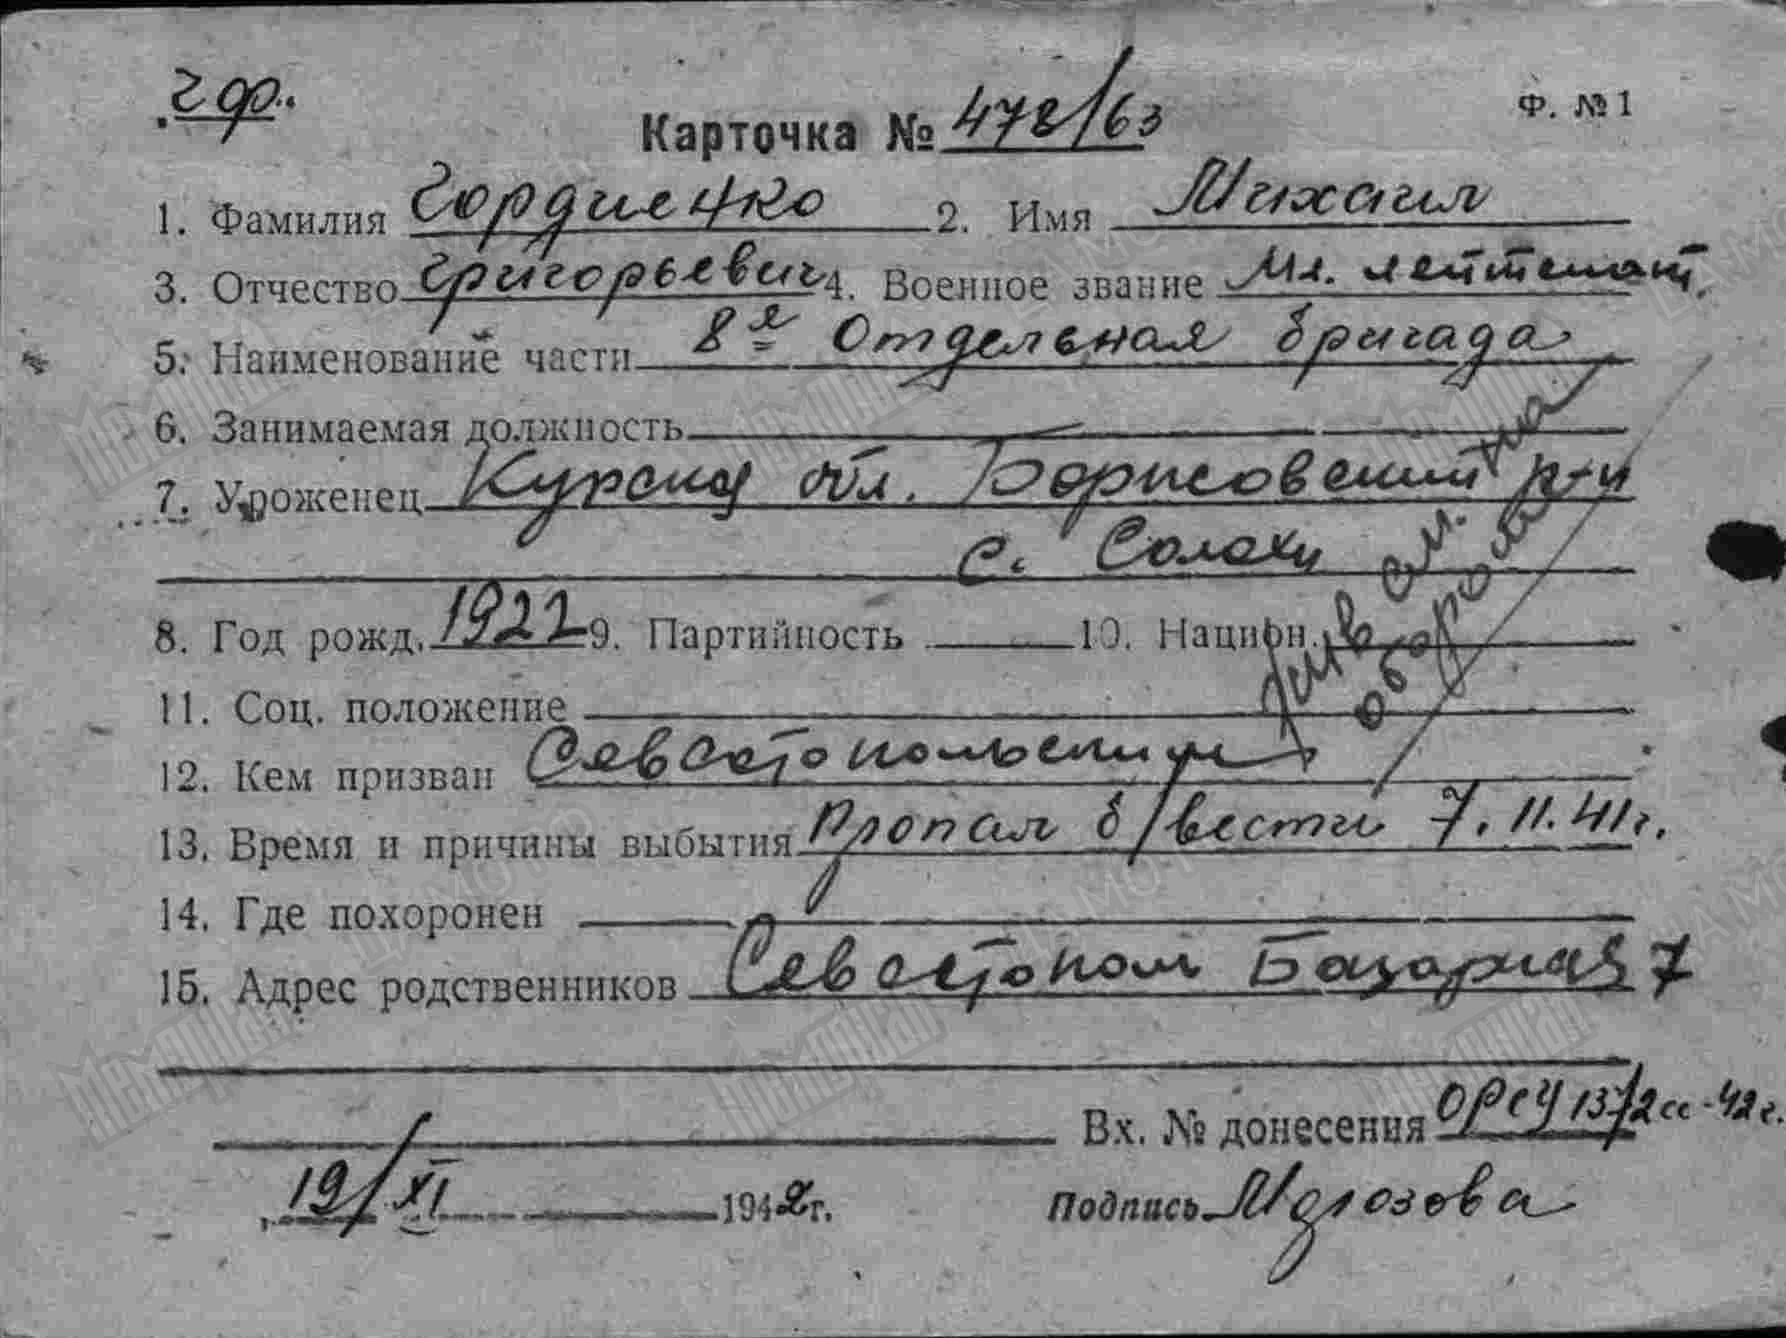 гф.
Ф. №1
Карточка № 478/63
1. Фамилия Гордиенко 2. Имя Михаил
3. Отчество Григорьевич 4. Военное звание Мл. лейтенант
5. Наименование части 8я Отдельная бригада
6. Занимаемая должность
7. Уроженец Курская обл. Борисовский р-н
с. Солохи
8. Год рожд. 1922 9. Партийность 10. Национ.
жив см. на
обороте
11. Соц. положение
12. Кем призван Севастопольским
13. Время и причины выбытия Пропал б/вести 7.11.41г.
14. Где похоронен
15. Адрес родственников Севастополь Базарная 7
Вх. № донесения ОРСУ 1372сс-42г.
19/XI 1942г. Подпись Морозова
Мемориал
ЦАМО РФ